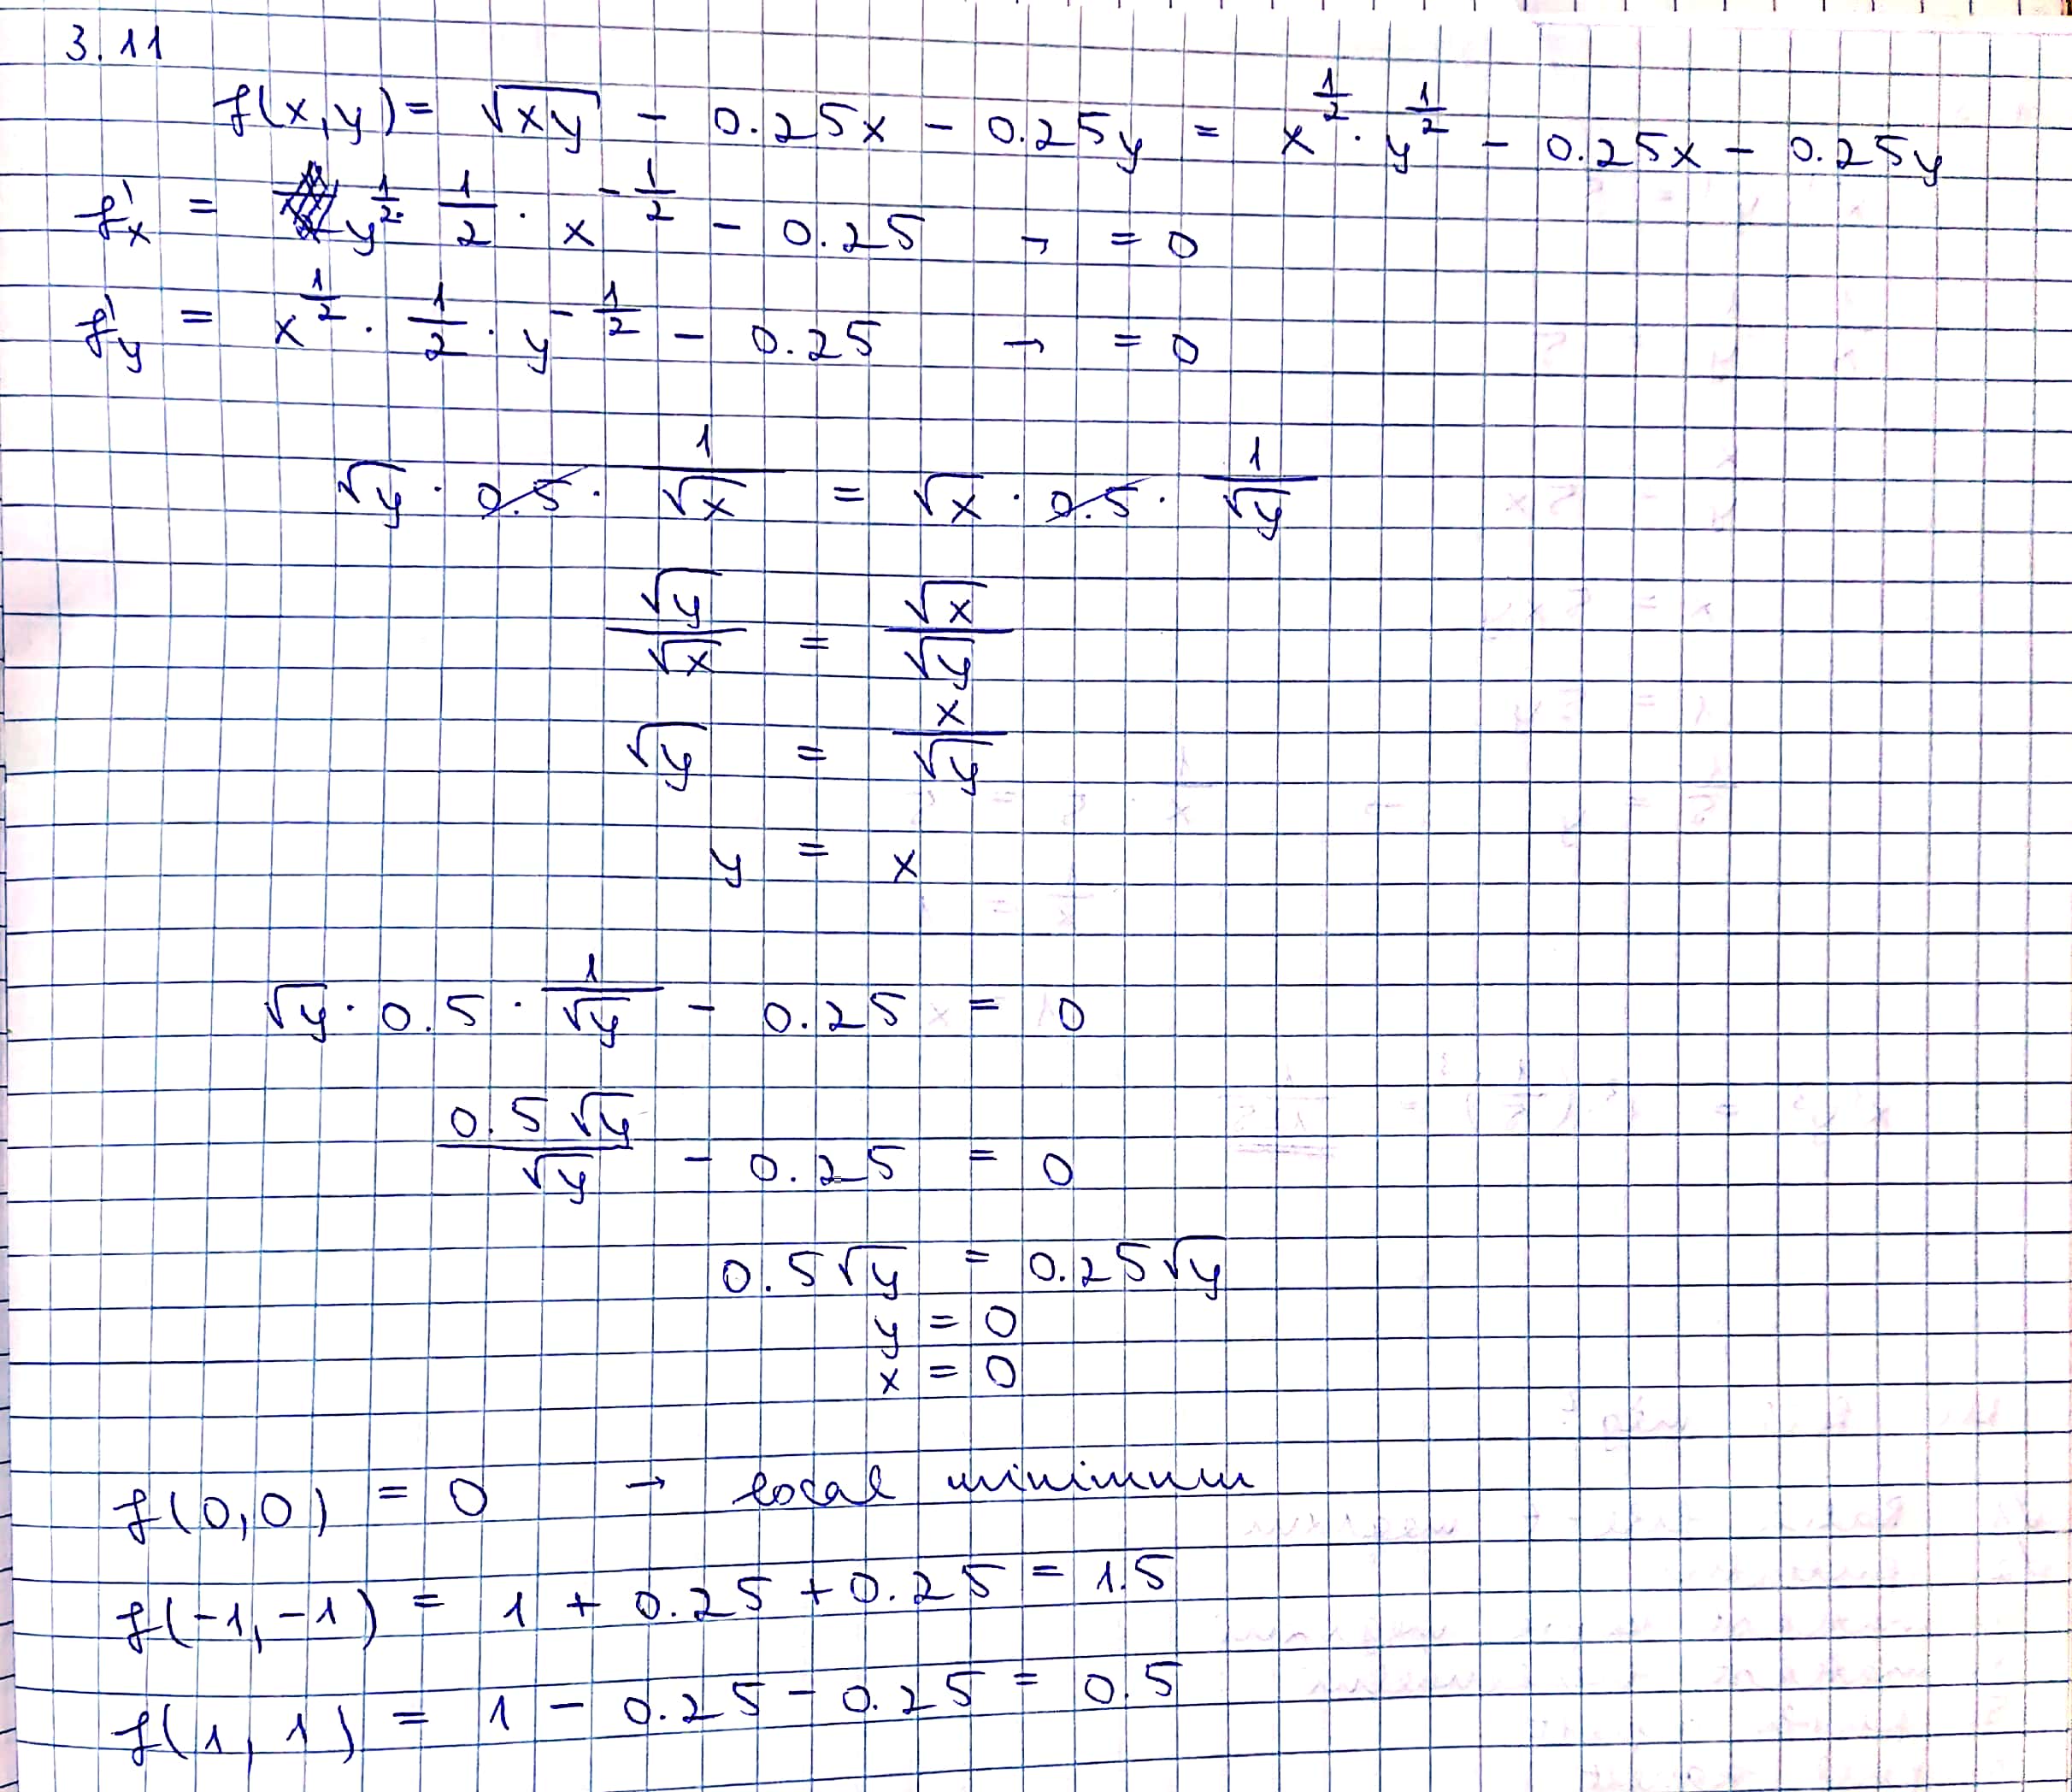 3.11
f(x,y) = √xy - 0.25x - 0.25y = x^{1/2} · y^{1/2} - 0.25x - 0.25y
f'x = y^{1/2} · 1/2 · x^{-1/2} - 0.25 → = 0
f'y = x^{1/2} · 1/2 · y^{-1/2} - 0.25 → = 0
√y · 0.5 · 1/√x = √x · 0.5 · 1/√y
√y/√x = √x/√y
√y = x/√y
y = x
√y · 0.5 · 1/√y - 0.25 = 0
0.5√y/√y - 0.25 = 0
0.5√y = 0.25√y
y = 0
x = 0
f(0,0) = 0 → local minimum
f(-1,-1) = 1 + 0.25 + 0.25 = 1.5
f(1,1) = 1 - 0.25 - 0.25 = 0.5